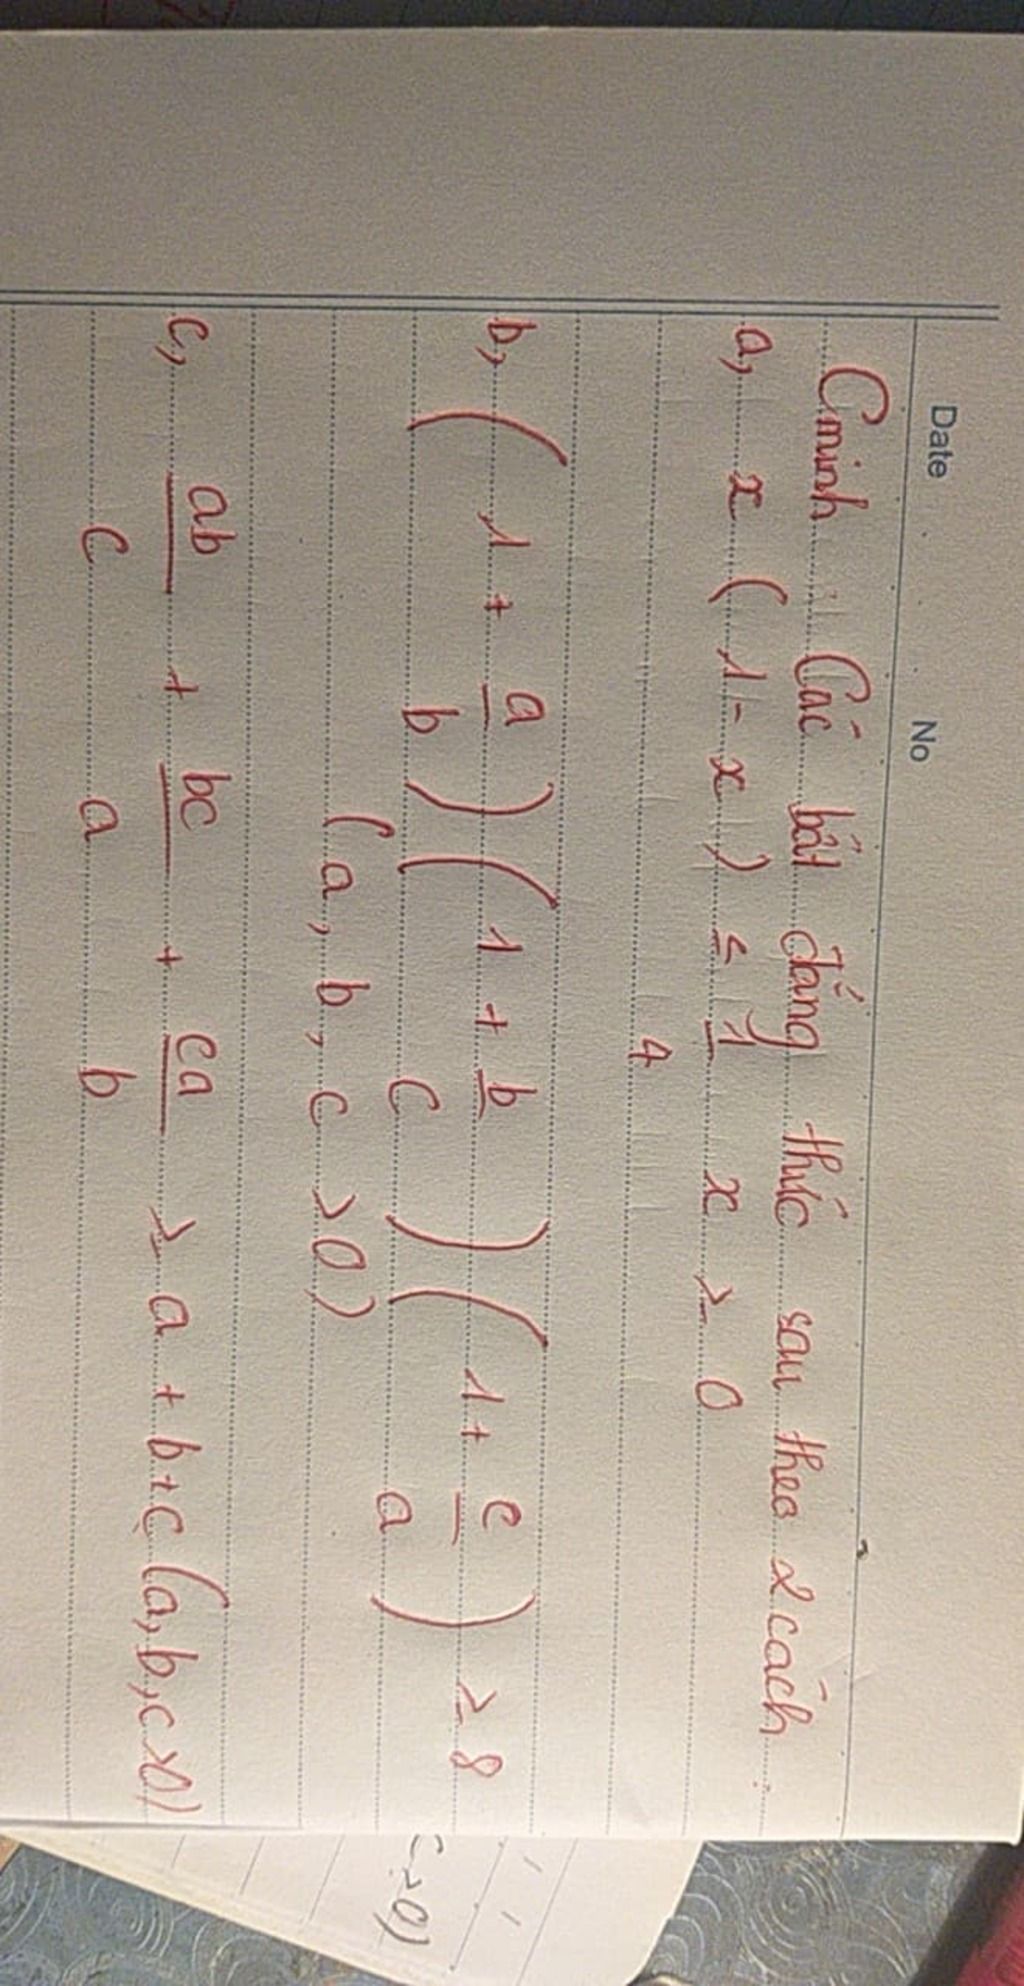 Date No
Cminh Các bất đẳng thức sau theo 2 cách :
a, x ( 1 - x ) ≤ 1/4 x ≥ 0
b, ( 1 + a/b ) ( 1 + b/c ) ( 1 + c/a ) ≥ 8
( a, b, c > 0 )
c, ab/c + bc/a + ca/b ≥ a + b + c (a, b, c > 0)
c > 0)